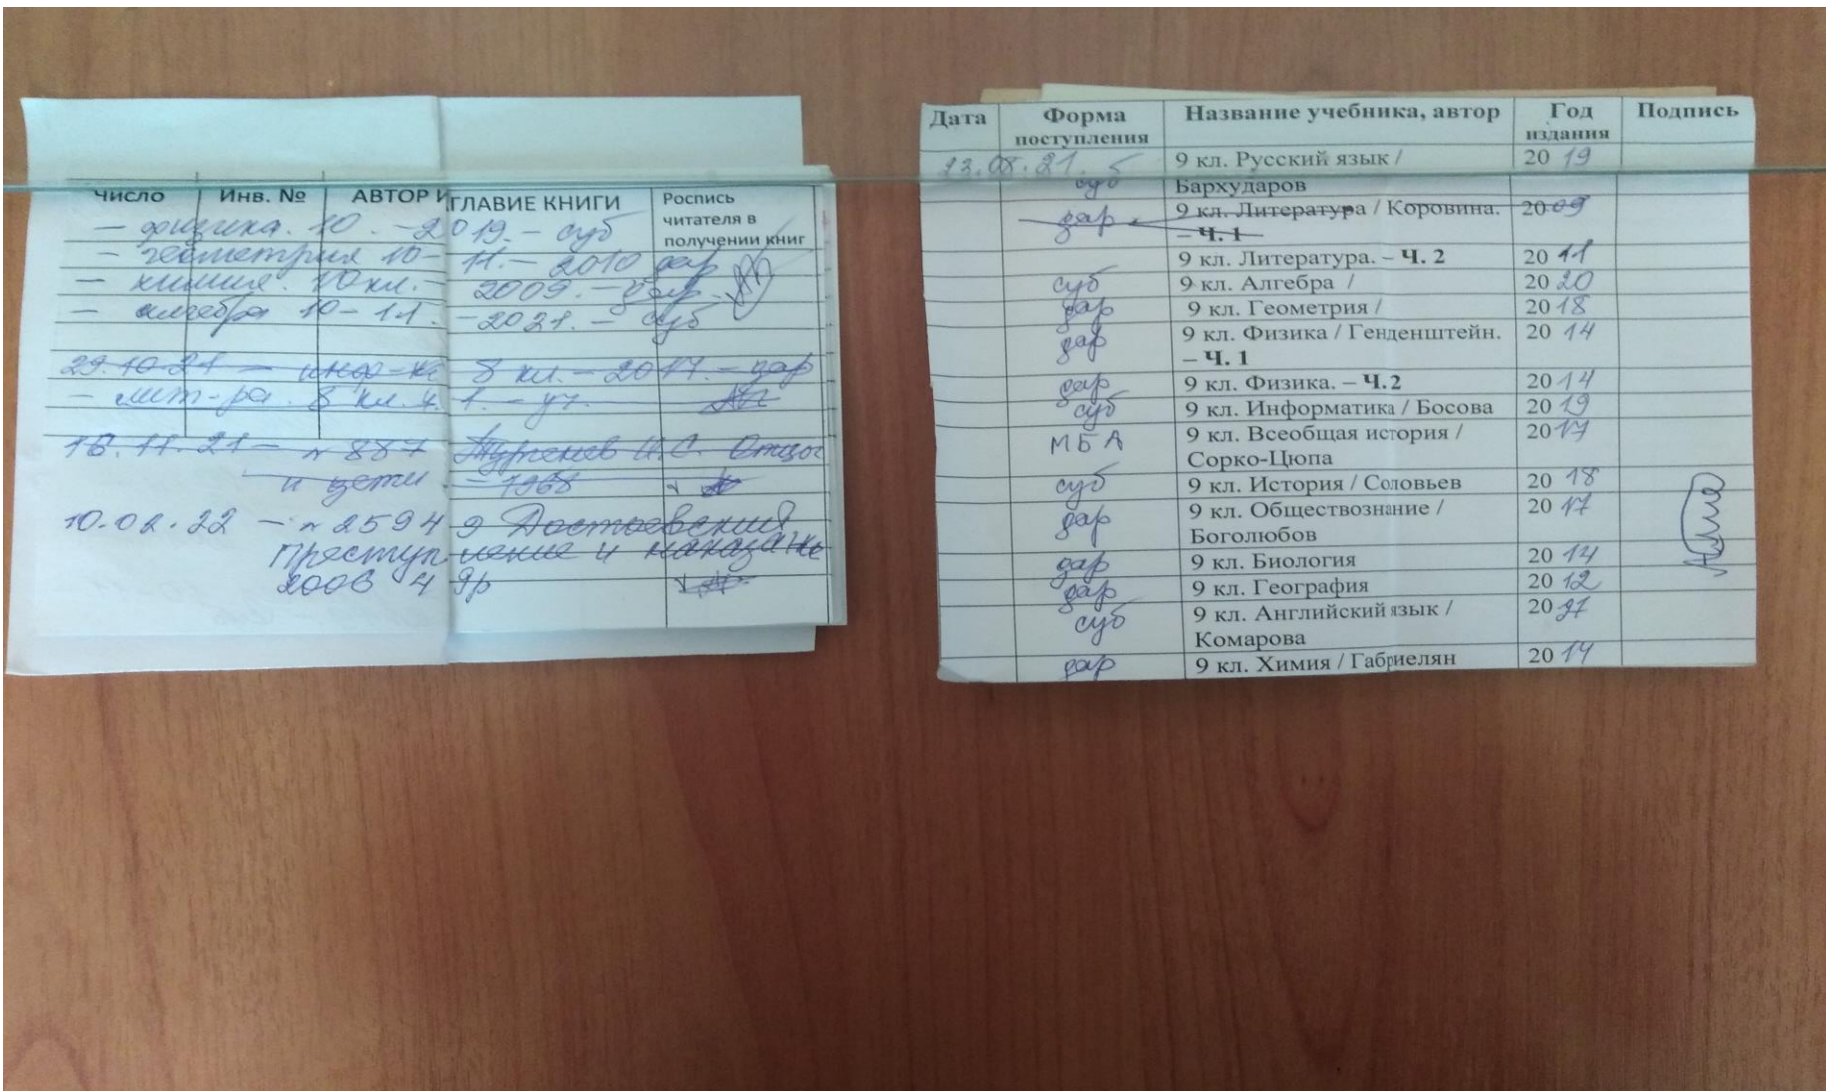 число Инв. № АВТОР И ГЛАВИЕ КНИГИ Роспись
читателя в
получении книг
– физика. 10. – 2019. – суб
– геометрия 10 – 11. – 2010 дар
– химия. 10 кл. – 2009. – дар
– алгебра 10 – 11. – 2021. – суб
29.10.21 – инф-ка 8 кл. – 2017. – дар
– лит-ра. 8 кл. ч. 1. – уч.
16.11.21 – № 887 Тургенев И.С. Отцы
и дети – 1968
10.02.22 – № 2594 9 Достоевский
Преступление и наказание
2006
Дата Форма Название учебника, автор Год Подпись
поступления издания
23.08.21. 9 кл. Русский язык / 2019
суб Бархударов
дар 9 кл. Литература / Коровина. 2009
– Ч. 1
9 кл. Литература. – Ч. 2 2011
суб 9 кл. Алгебра / 2020
дар 9 кл. Геометрия / 2018
дар 9 кл. Физика / Генденштейн. 2014
– Ч. 1
дар 9 кл. Физика. – Ч.2 2014
суб 9 кл. Информатика / Босова 2019
МБА 9 кл. Всеобщая история / 2017
Сорко-Цюпа
суб 9 кл. История / Соловьев 2018
дар 9 кл. Обществознание / 2017
Боголюбов
дар 9 кл. Биология 2014
дар 9 кл. География 2012
суб 9 кл. Английский язык / 20
Комарова
дар 9 кл. Химия / Габриелян 2014